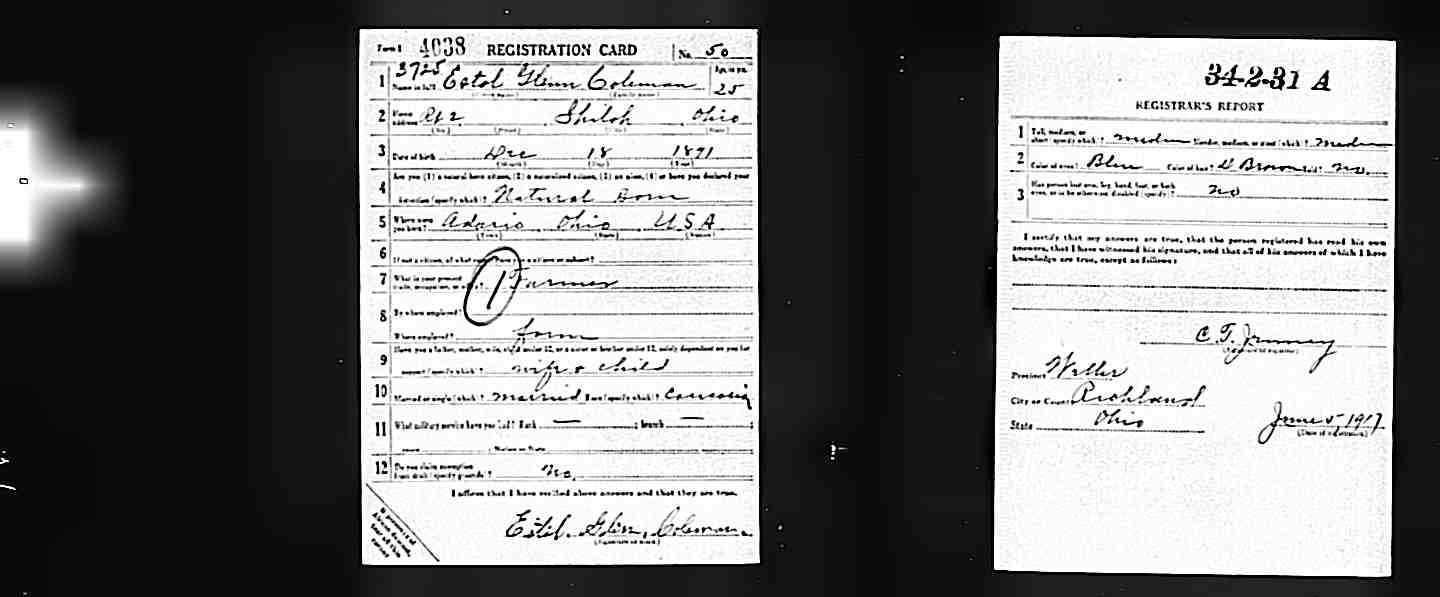 Form 1 4038 REGISTRATION CARD No. 50
3725
1 Name in full Estol Glenn Coleman Age, in yrs. 25
(Given name) (Family name)
2 Home address Rt 2 Shiloh Ohio
(No.) (Street) (City) (State)
3 Date of birth Dec 18 1891
(Month) (Day) (Year)
4 Are you (1) a natural born citizen, (2) a naturalized citizen, (3) an alien, (4) or have you declared your
intention (specify which)? Natural Born
5 Where were you born? Adario Ohio USA
(Town) (State) (Nation)
6 If not a citizen, of what country are you a citizen or subject?
7 What is your present trade, occupation, or office? 1 Farmer
8 By whom employed?
Where employed? farm
9 Have you a father, mother, wife, child under 12, or a sister or brother under 12, solely dependent on you for
support (specify which)? wife & child
10 Married or single (which)? Married Race (specify which)? Caucasian
11 What military service have you had? Rank — ; branch — ;
years ; Nation or State
12 Do you claim exemption from draft (specify grounds)? No.
I affirm that I have verified above answers and that they are true.
Estel Glenn Coleman
(Signature or mark)
34-2-31 A
REGISTRAR'S REPORT
1 Tall, medium, or short (specify which)? medium Slender, medium, or stout (which)? Medium
2 Color of eyes? Blue Color of hair? D Brown Bald? No.
3 Has person lost arm, leg, hand, foot, or both eyes, or is he otherwise disabled (specify)? no
I certify that my answers are true, that the person registered has read his own
answers, that I have witnessed his signature, and that all of his answers of which I have
knowledge are true, except as follows:
(Signature of registrar)
Precinct Weller
City or County Richland
State Ohio June 5, 1917
(Date of registration)